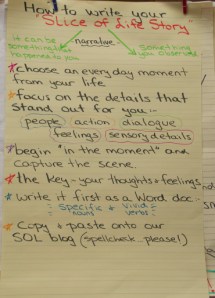 How to write your
"Slice of Life Story"
narrative
it can be something that happened to you
Something you observed
choose an everyday moment
from your life
focus on the details that
stand out for you...
people action dialogue
feelings sensory details
begin "in the moment" and
capture the scene.
the key - your thoughts + feelings
write it first as a Word doc.
specific nouns + vivid verbs
Copy + paste onto our
SOL blog (spellcheck, please!)